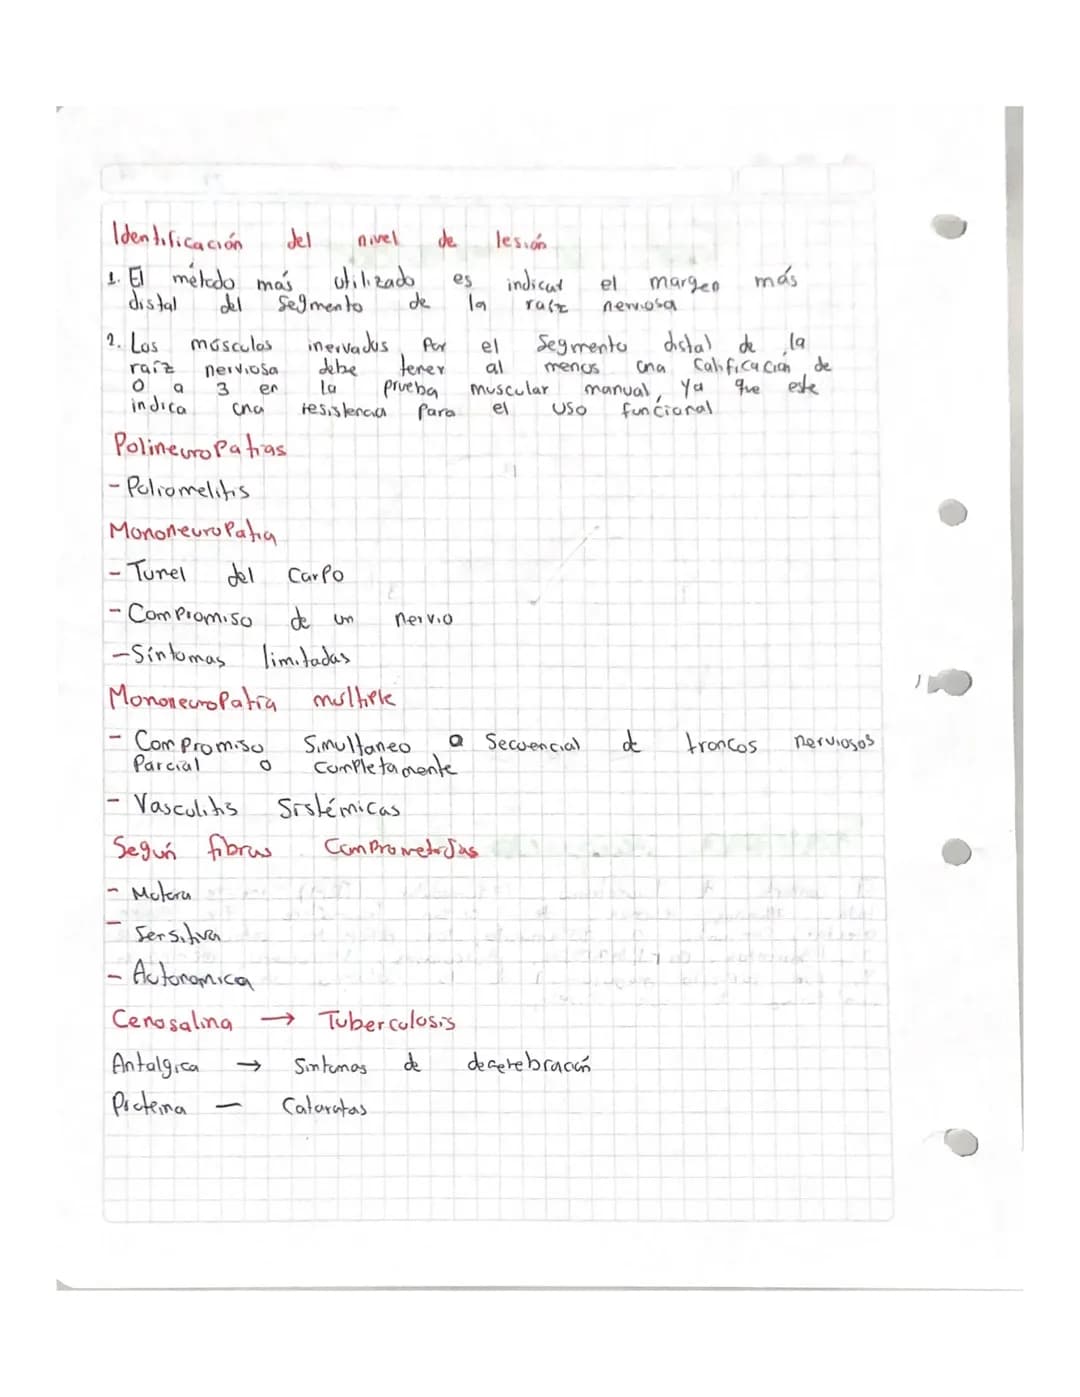 Identificación del nivel de lesión
1. El método más utilizado es indicar el margen más
distal del segmento de la raíz nerviosa
2. Los músculos inervados por el segmento distal de la
raíz nerviosa debe tener al menos una calificación de
0 a 3 en la prueba muscular manual, ya que este
indica una resistencia para el uso funcional
Polineuropatias
- Poliomelitis
Mononeuropatia
- Tunel del carpo
- Compromiso de un nervio
- Síntomas limitadas
Mononeuropatía multiple
- Compromiso simultaneo o secuencial de troncos nerviosos
Parcial o completamente
- Vasculitis sistémicas
Según fibras comprometidas
- Motora
- Sensitiva
- Autonomica
Cenosalina → Tuberculosis
Antalgica → Sintomas de decerebración
Proteina - Cataratas